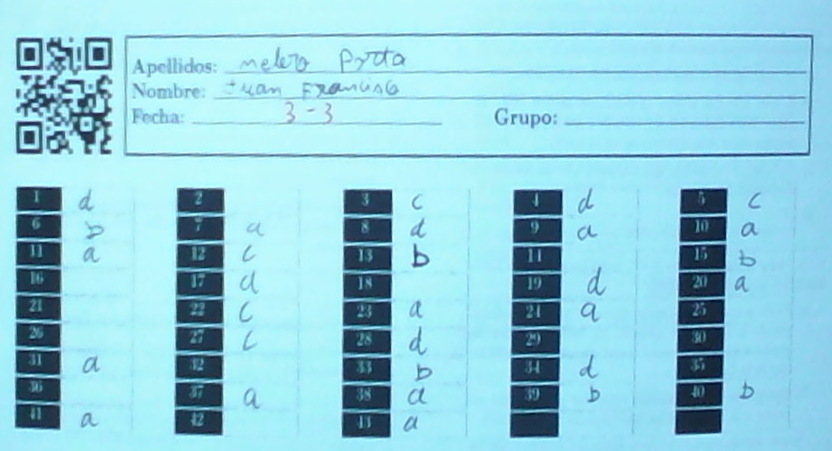 Apellidos: Melero Porta
Nombre: Juan Francisco
Fecha: 3-3 Grupo:
1 d 2 3 c 4 d 5 c
6 b 7 a 8 d 9 a 10 a
11 a 12 c 13 b 14 15 b
16 17 d 18 19 d 20 a
21 22 c 23 a 24 a 25
26 27 c 28 d 29 30
31 a 32 33 b 34 d 35
36 37 a 38 a 39 b 40 b
41 a 42 43 a